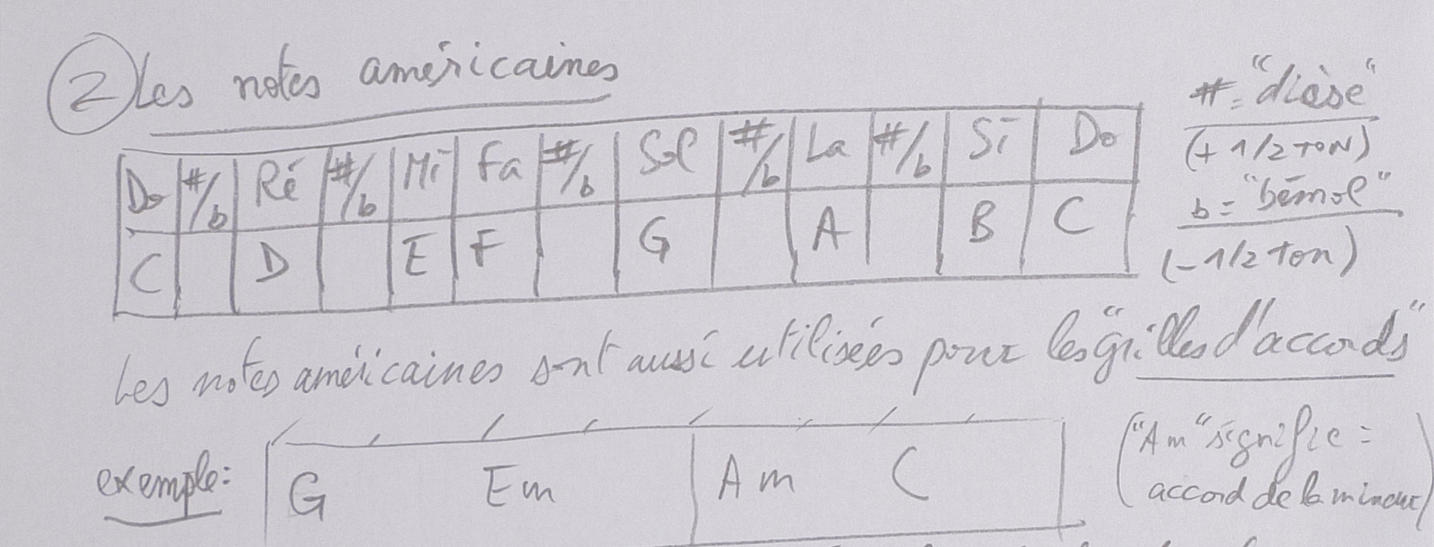 2 Les notes américaines
#="dièse"
(+ 1/2 TON)
b="bémol"
(- 1/2 ton)
Do #/b Ré #/b Mi Fa #/b Sol #/b La #/b Si Do
C D E F G A B C
Les notes américaines sont aussi utilisées pour les "grilles d'accords"
exemple: G Em Am C
("Am" signifie =
accord de la mineur)